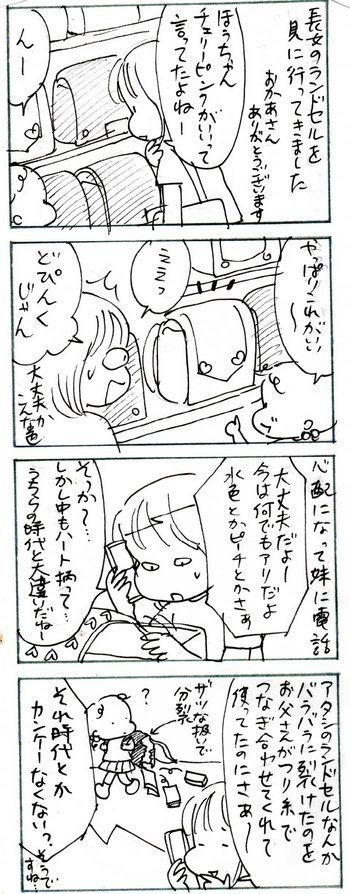 長女のランドセルを
見に行ってきました
おかあさん
ありがとうございます
ほぅちゃん
チェリーピンクがいいって
言ってたよねー
んー
やっぱりこれがいい
〜
ええっ
どぴんく
じゃん
大丈夫か
こんな畨
心配になって妹に電話
大丈夫だよー
今は何でもアリだよ
水色とかピーチとかさぁ
そっか〜…
しかし中もハート柄って…
うちらの時代と大違いだねー
アタシのランドセルなんか
バラバラに裂けたのを
お父さんがつり糸で
つなぎ合わせてくれて
使ってたのにさぁー
ザツな扱いで
分裂
?
それ時代とか
カンケーなくない?
そうで
すね…